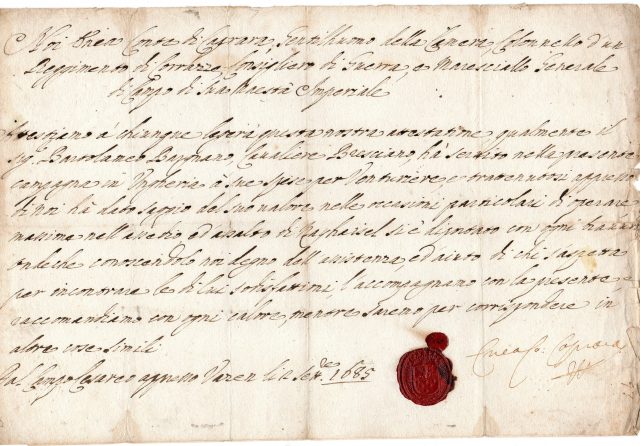 Noi Enea Conte di Caprara, Gentilhuomo della Camera, Colonnello d'un
Reggimento di Corazze, Consigliero di Guerra, e Maresciallo Generale
di Campo di Sua Maestà Imperiale
à chiunque leggerà questa nostra attestatione qualmente il
Sig. Bartolameo Bagnano, Cavaliere Bresciano, hà servito nella presente
campagna in Ungheria à sue spese per Venturiere, e trattenutosi appresso
di noi hà dato saggio del suo valore nelle occasioni particolari di operare
massime nell'assedio ed assalto di si è diportato con ogni
onde che conoscendolo noi degno dell'assistenza, ed aiuto di chi
per incontrare le di lui sodisfattioni, l'accompagnamo con la presente, e
raccomandiamo con ogni calore, mentre saremo per corrispondere in
altre cose simili
Dal Campo Cesareo appresso li 1685
Enea Co: Caprara